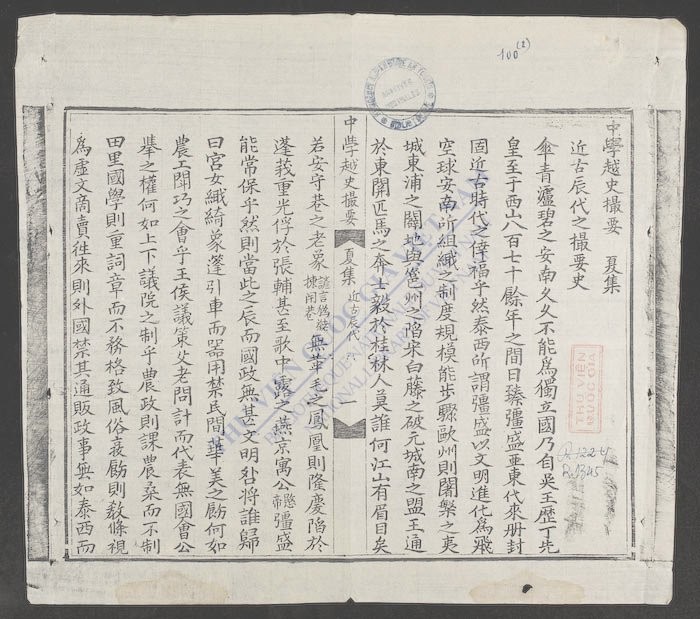 100(2)
中學越史撮要 夏集
近古辰代之撮要史
傘青瀘碧之安南久久不能爲獨立國乃自吳王歷丁先
皇至于西山八百七十餘年之間日臻彊盛亜東代來册封
固近古時代之倖福乎然泰西所謂彊盛以文明進化爲飛
空球安南所組織之制度規模能步驟歐州則闍槃之夷
城東浦之闢地與邕州之陷宋白藤之破元城南之盟王通
於東關匹馬之奔士毅於桂林人莫誰何江山有眉目矣
中學越史撮要 夏集 近古辰代 一
若安守巷之老象諺言僞漤揀閑巷無華毛之鳳凰則隆慶陷於
蓬莪重光俘於張輔甚至歌中露之燕京寓公愍帝彊盛
能常保乎然則當此之辰而國政無甚文明咎將誰歸
曰宮女織綺象蓬引車而器用禁民間華美之飭何如
農工鬪巧之會乎王侯議策父老問計而代表無國會公
舉之權何如上下議院之制乎農政則課農桑而不制
田里國學則重詞章而不務格致風俗衰飭則数條視
爲虛文商賣徃來則外國禁其通販政事無如泰西而
THƯ VIỆN
QUỐC GIA
THƯ VIỆN QUỐC GIA VIỆT NAM